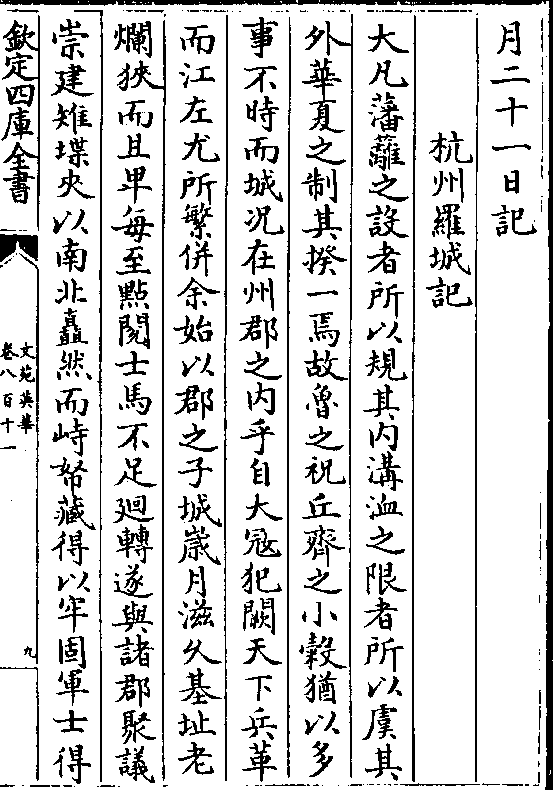 月二十一日記
杭州羅城記
大凡藩籬之設者所以規其内溝洫之限者所以虞其
外華夏之制其揆一焉故魯之祝丘齊之小穀猶以多
事不時而城況在州郡之内乎自大寇犯闕天下兵革
而江左尤所繁併余始以郡之子城歲月滋久基址老
爛狹而且卑每至點閱士馬不足廻轉遂與諸郡聚議
崇建雉堞夾以南北矗然而峙帑藏得以牢固軍士得
欽定四庫全書
文苑英華
卷八百十一
九